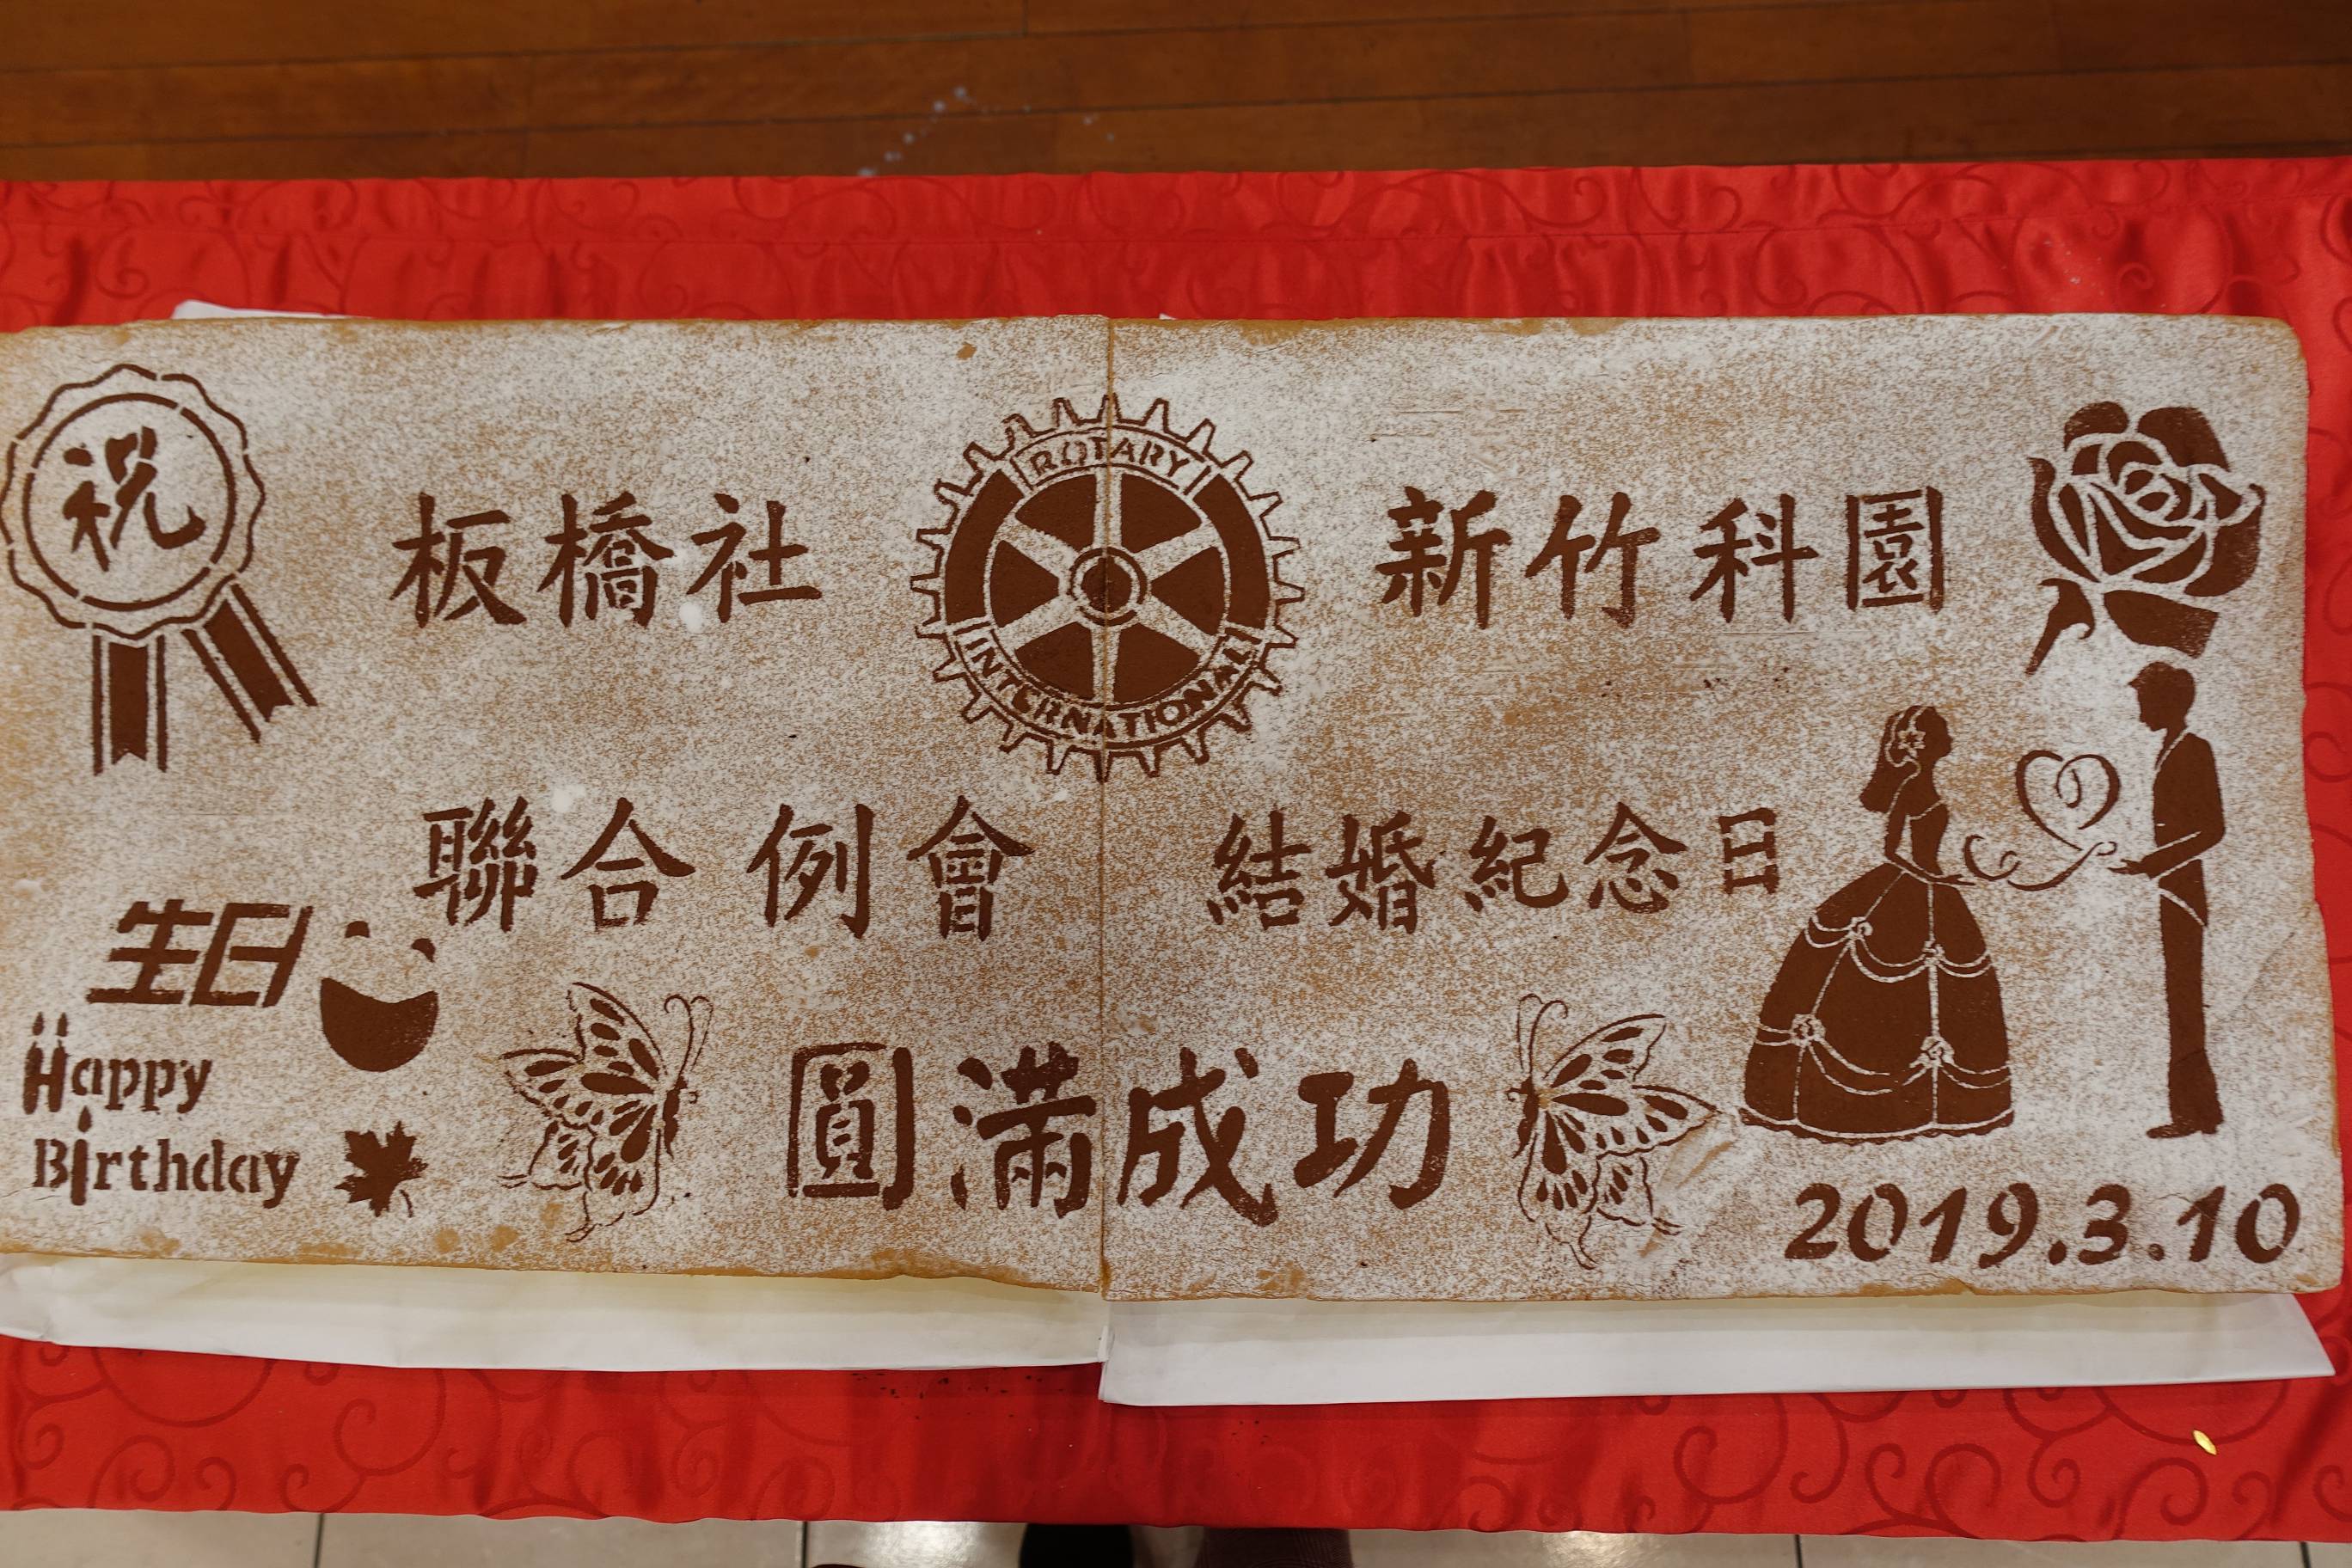 祝
板橋社
ROTARY
INTERNATIONAL
新竹科園
聯合例會
結婚紀念日
生日
Happy
Birthday
圓滿成功
2019.3.10